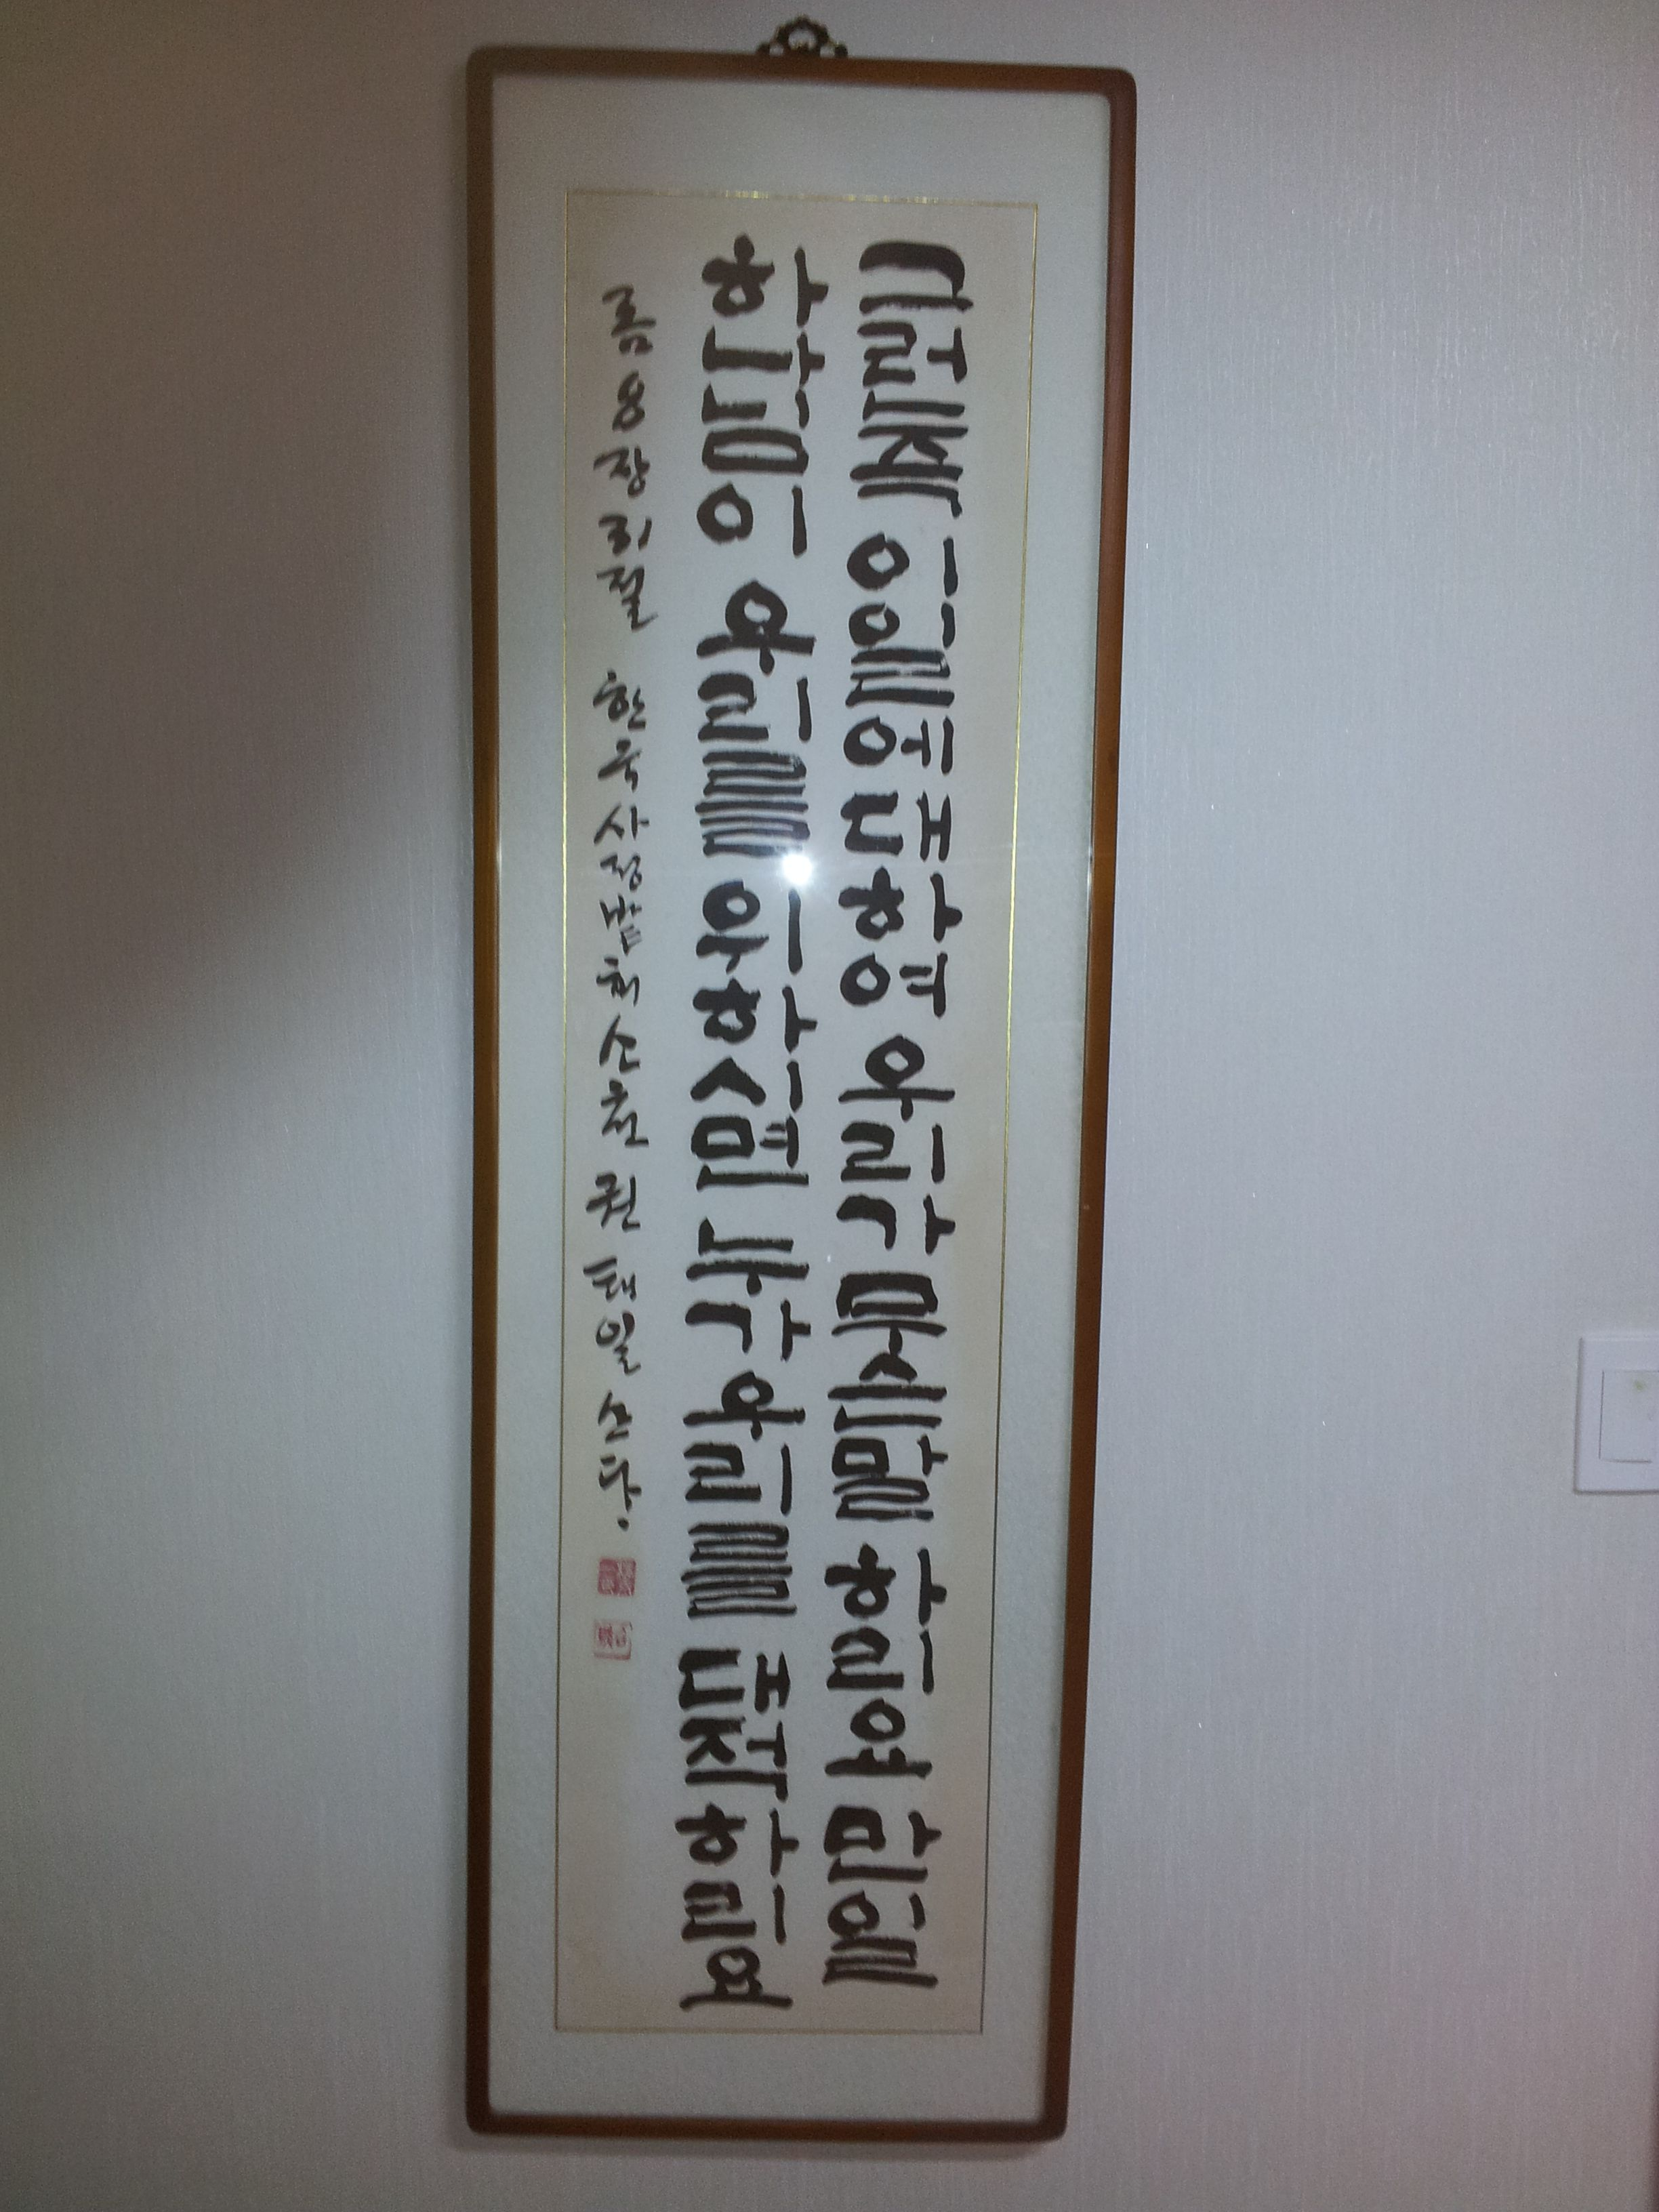 그런즉 이일에 대하여 우리가 무슨말 하리요 만일
하나님이 우리를 위하시면 누가 우리를 대적하리요
롬 8장 31절 한국 사랑밭회 권 태일 쓰다.